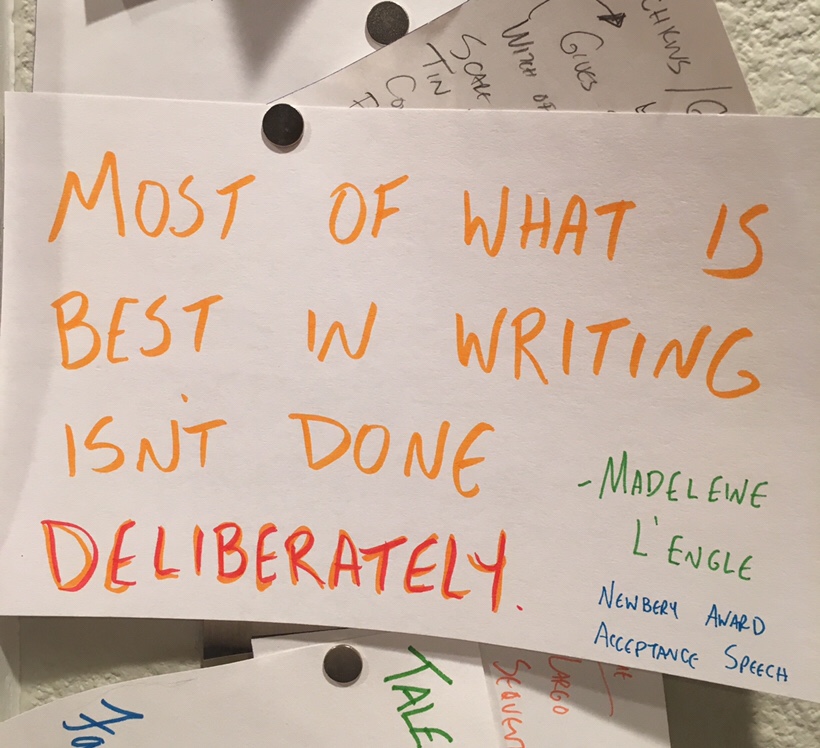 CHKNS / G
GIVES
WITH OF
SCALE
TIN
CO
MOST OF WHAT IS
BEST IN WRITING
ISN'T DONE
DELIBERATELY.
-MADELEINE
L'ENGLE
NEWBERY AWARD
ACCEPTANCE SPEECH
TALE
LARGO
SEQUEN